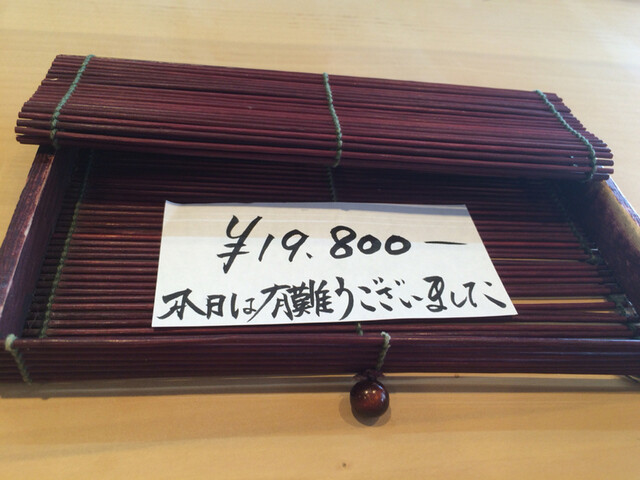 ¥19.800－
本日は有難うございました